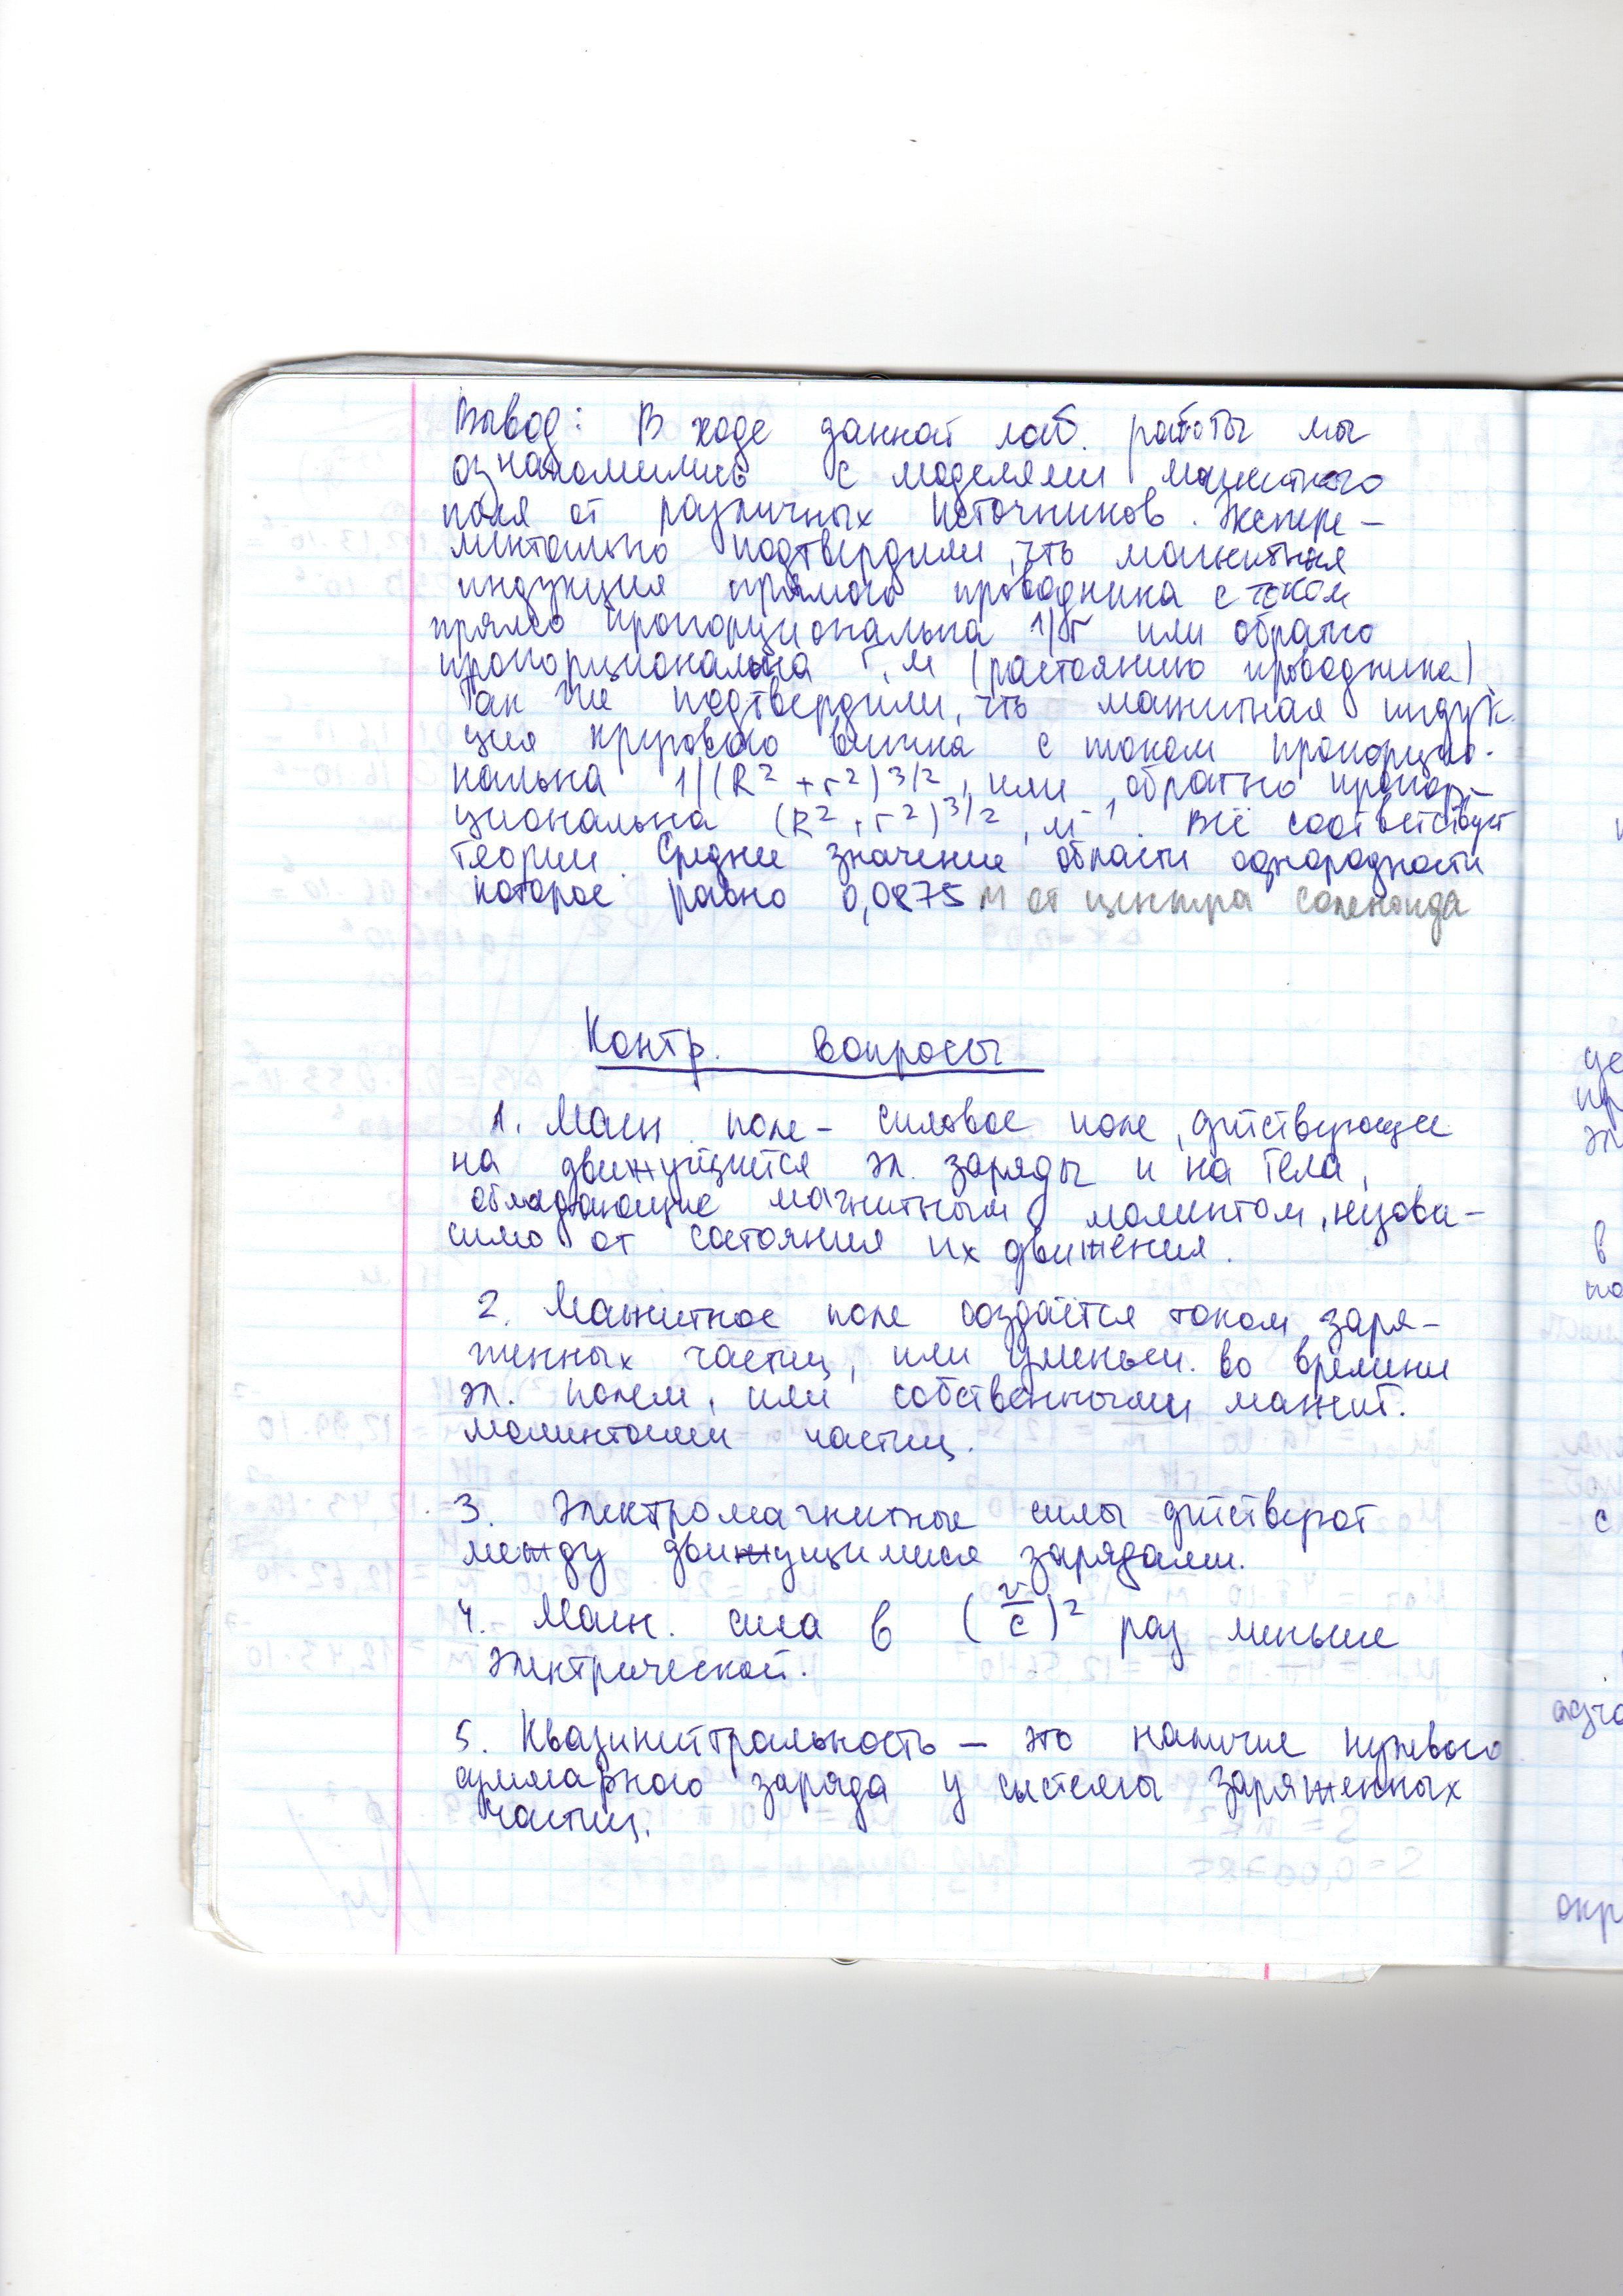 Вывод: В ходе данной лаб. работы мы
ознакомились с моделями магнитного
поля от различных источников. Экспере-
ментально подтвердили, что магнитная
индукция прямого проводника с током
прямо пропорциональна 1/r или обратно
пропорциональна r, м (растоянию проводника)
Так же подтвердили, что магнитная индук-
ция кругового витка с током пропорцио-
нальна 1/(R² + r²)^3/2, или обратно пропор-
циональна (R² + r²)^3/2, м⁻¹. Всё соответствует
теории. Среднее значение области однородности
которое равно 0,0875 м от центра соленоида
Контр. вопросы
1. Магн. поле - силовое поле, действующее
на движущиеся эл. заряды и на тела,
обладающие магнитным моментом, незави-
симо от состояния их движения.
2. Магнитное поле создаётся током заря-
женных частиц, или во времени
эл. полем, или собственными магнит.
моментами частиц.
3. Электромагнитные силы действуют
между движущимися зарядами.
4. Магн. сила в (v/c)² раз меньше
электрической.
5. Квазинейтральность - это наличие нулевого
суммарного заряда у системы заряженных
частиц.
це
пр
эл
в
по
с
окр